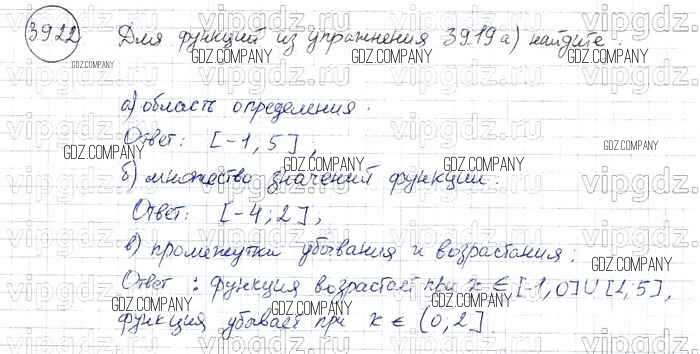 3922 Для функций из упражнения 3919 а) найдите:
а) область определения.
Ответ: [-1, 5],
б) множество значений функции.
Ответ: [-4; 2],
в) промежутки убывания и возрастания:
Ответ: функция возрастает при x ∈ [-1, 0] U [2, 5],
функция убывает при x ∈ (0, 2].
GDZ.COMPANY
vipgdz.ru